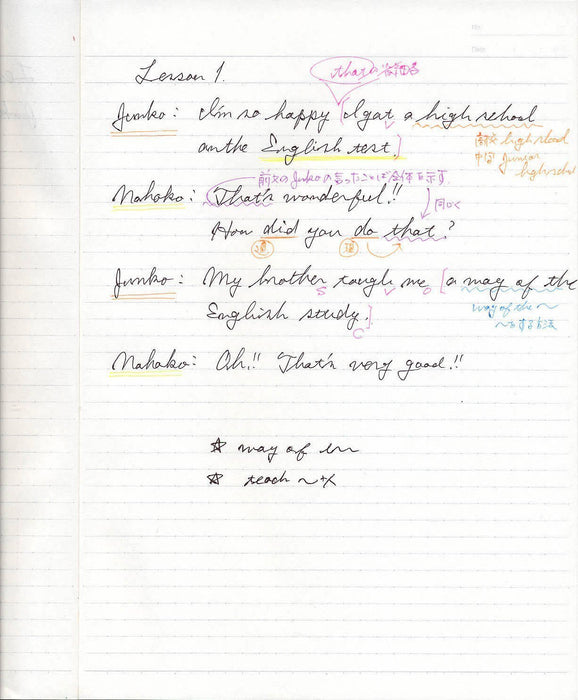 No.
Date
Lesson 1.
thatの省略
Junko: I'm so happy [I got a high school
on the English test.]
高校 high school
中学 junior
high school
前文のJunkoの言ったことば全体を示す
Nahoko: That's wonderful!!
同じく
How did you do that?
過 現
Junko: My brother taugh me [a way of the
S V O
English study.]
C
way of the ~
~する方法
Nahoko: Oh!! That's very good!!
☆ way of
☆ teach ~ +